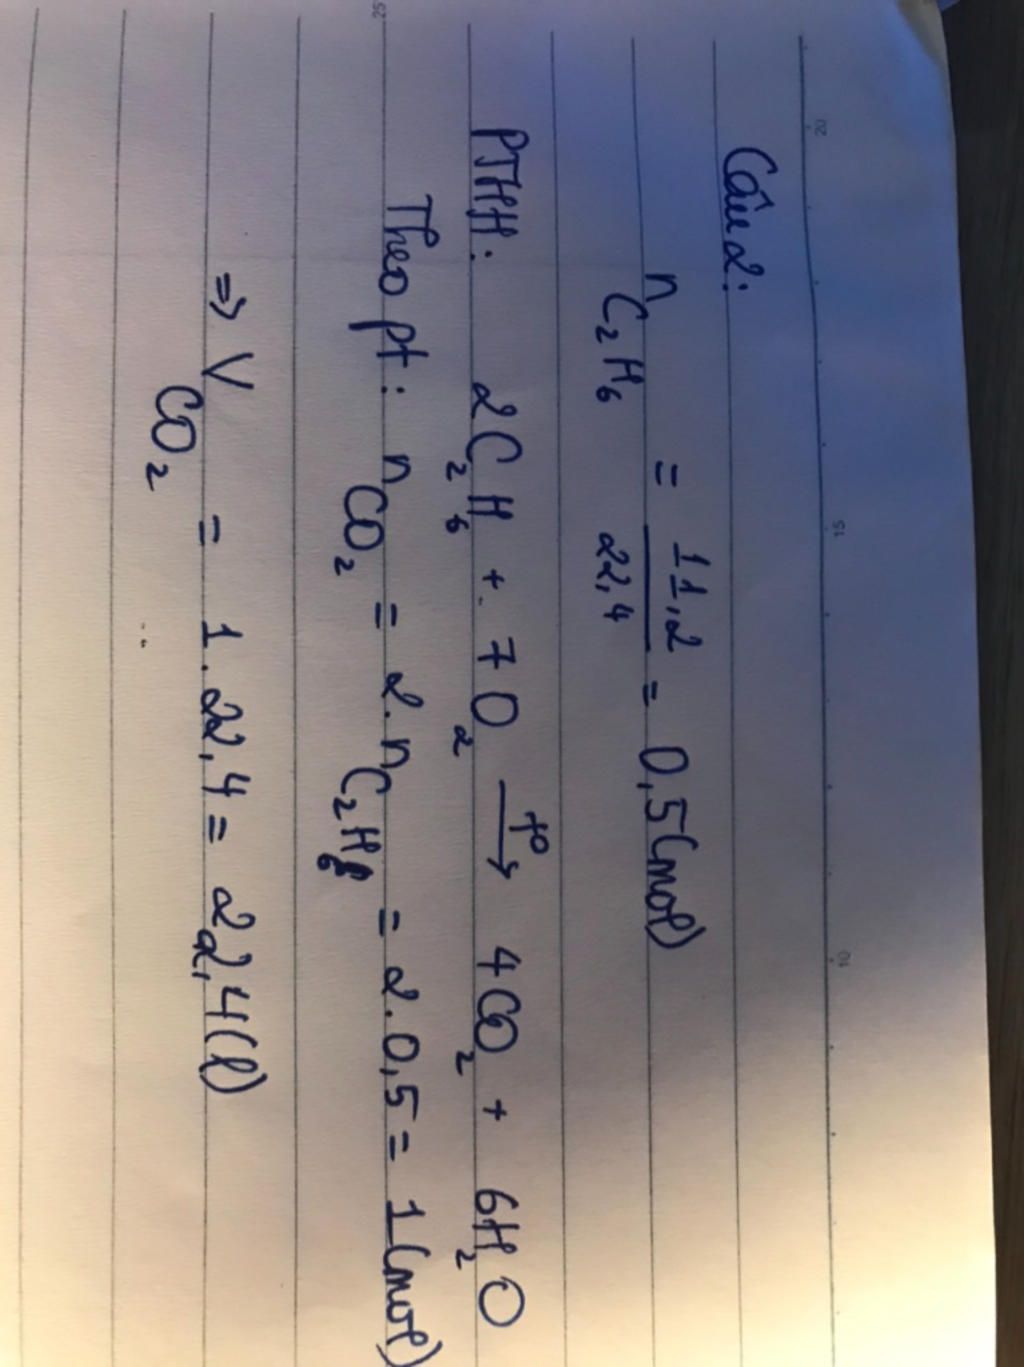 Câu 2:
n C₂H₆ = 11,2 / 22,4 = 0,5 (mol)
PTHH: 2C₂H₆ + 7O₂ —t⁰→ 4CO₂ + 6H₂O
Theo pt: n CO₂ = 2.n C₂H₆ = 2.0,5 = 1 (mol)
=> V CO₂ = 1.22,4 = 22,4 (l)
20
15
10
25